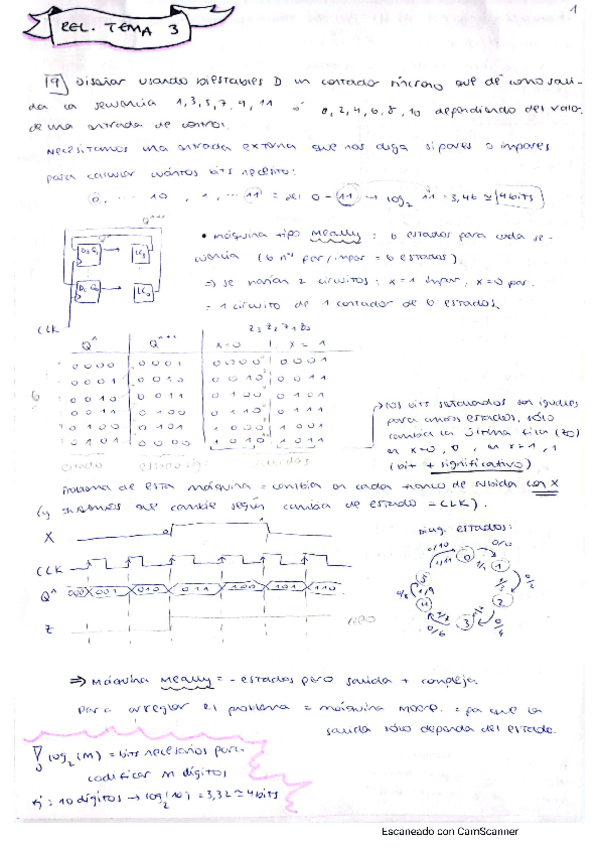 1
REL. TEMA 3
19 Diseñar usando biestables D un contador síncrono que dé como sali-
da la secuencia 1, 3, 5, 7, 9, 11 ó 0, 2, 4, 6, 8, 10 dependiendo del valor
de una entrada de control.
Necesitamos una entrada externa que nos diga si pares o impares
para calcular cuántos bits necesito:
0, ... 10 , 1, ... 11 = del 0 - 11 → log₂ 11 = 3,46 ≅ 4 bits
• máquina tipo Meally : 6 estados para cada se-
cuencia (6 nº par/impar = 6 estados).
⇒ se harían 2 circuitos : x=1 impar, x=0 par.
= 1 circuito de 1 contador de 6 estados.
CLK
Qⁿ Qⁿ⁺¹ x=0 x=1
0000 0001 0000 0001
0001 0010 0010 0011
0010 0011 0100 0101
0011 0100 0110 0111
0100 0101 1000 1001
0101 0000 1010 1011
estado salidas
los bits son iguales
para ambos estados, sólo
cambia la última fila (Z0)
en x=0, 0, en x=1, 1
(bit + significativo)
Problema de esta máquina = cambia en cada flanco de subida con X
(y queremos que cambie según cambia de estado - CLK).
Diag. estados:
X
CLK
Qⁿ 000 001 010 011 100 101 110
Z
⇒ Máquina Meally = - estados pero salida + compleja.
Para arreglar el problema = máquina Moore = ya que la
salida sólo dependa del estado.
log₂(M) = bits necesarios para
codificar M dígitos
Ej: 10 dígitos → log₂(10) = 3,32 ≅ 4 bits
Escaneado con CamScanner